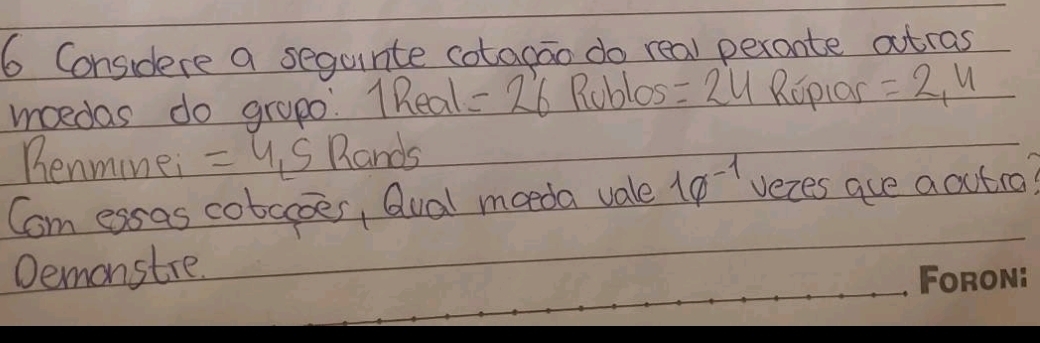 6 Considere a seguinte cotação do real perante outras
moedas do grupo: 1 Real = 26 Rublos = 24 Rúpias = 2,4
Renminei = 4,5 Rands
Com essas cotações, Qual moeda vale 10⁻¹ vezes que a outra?
Demonstre.
FORONI